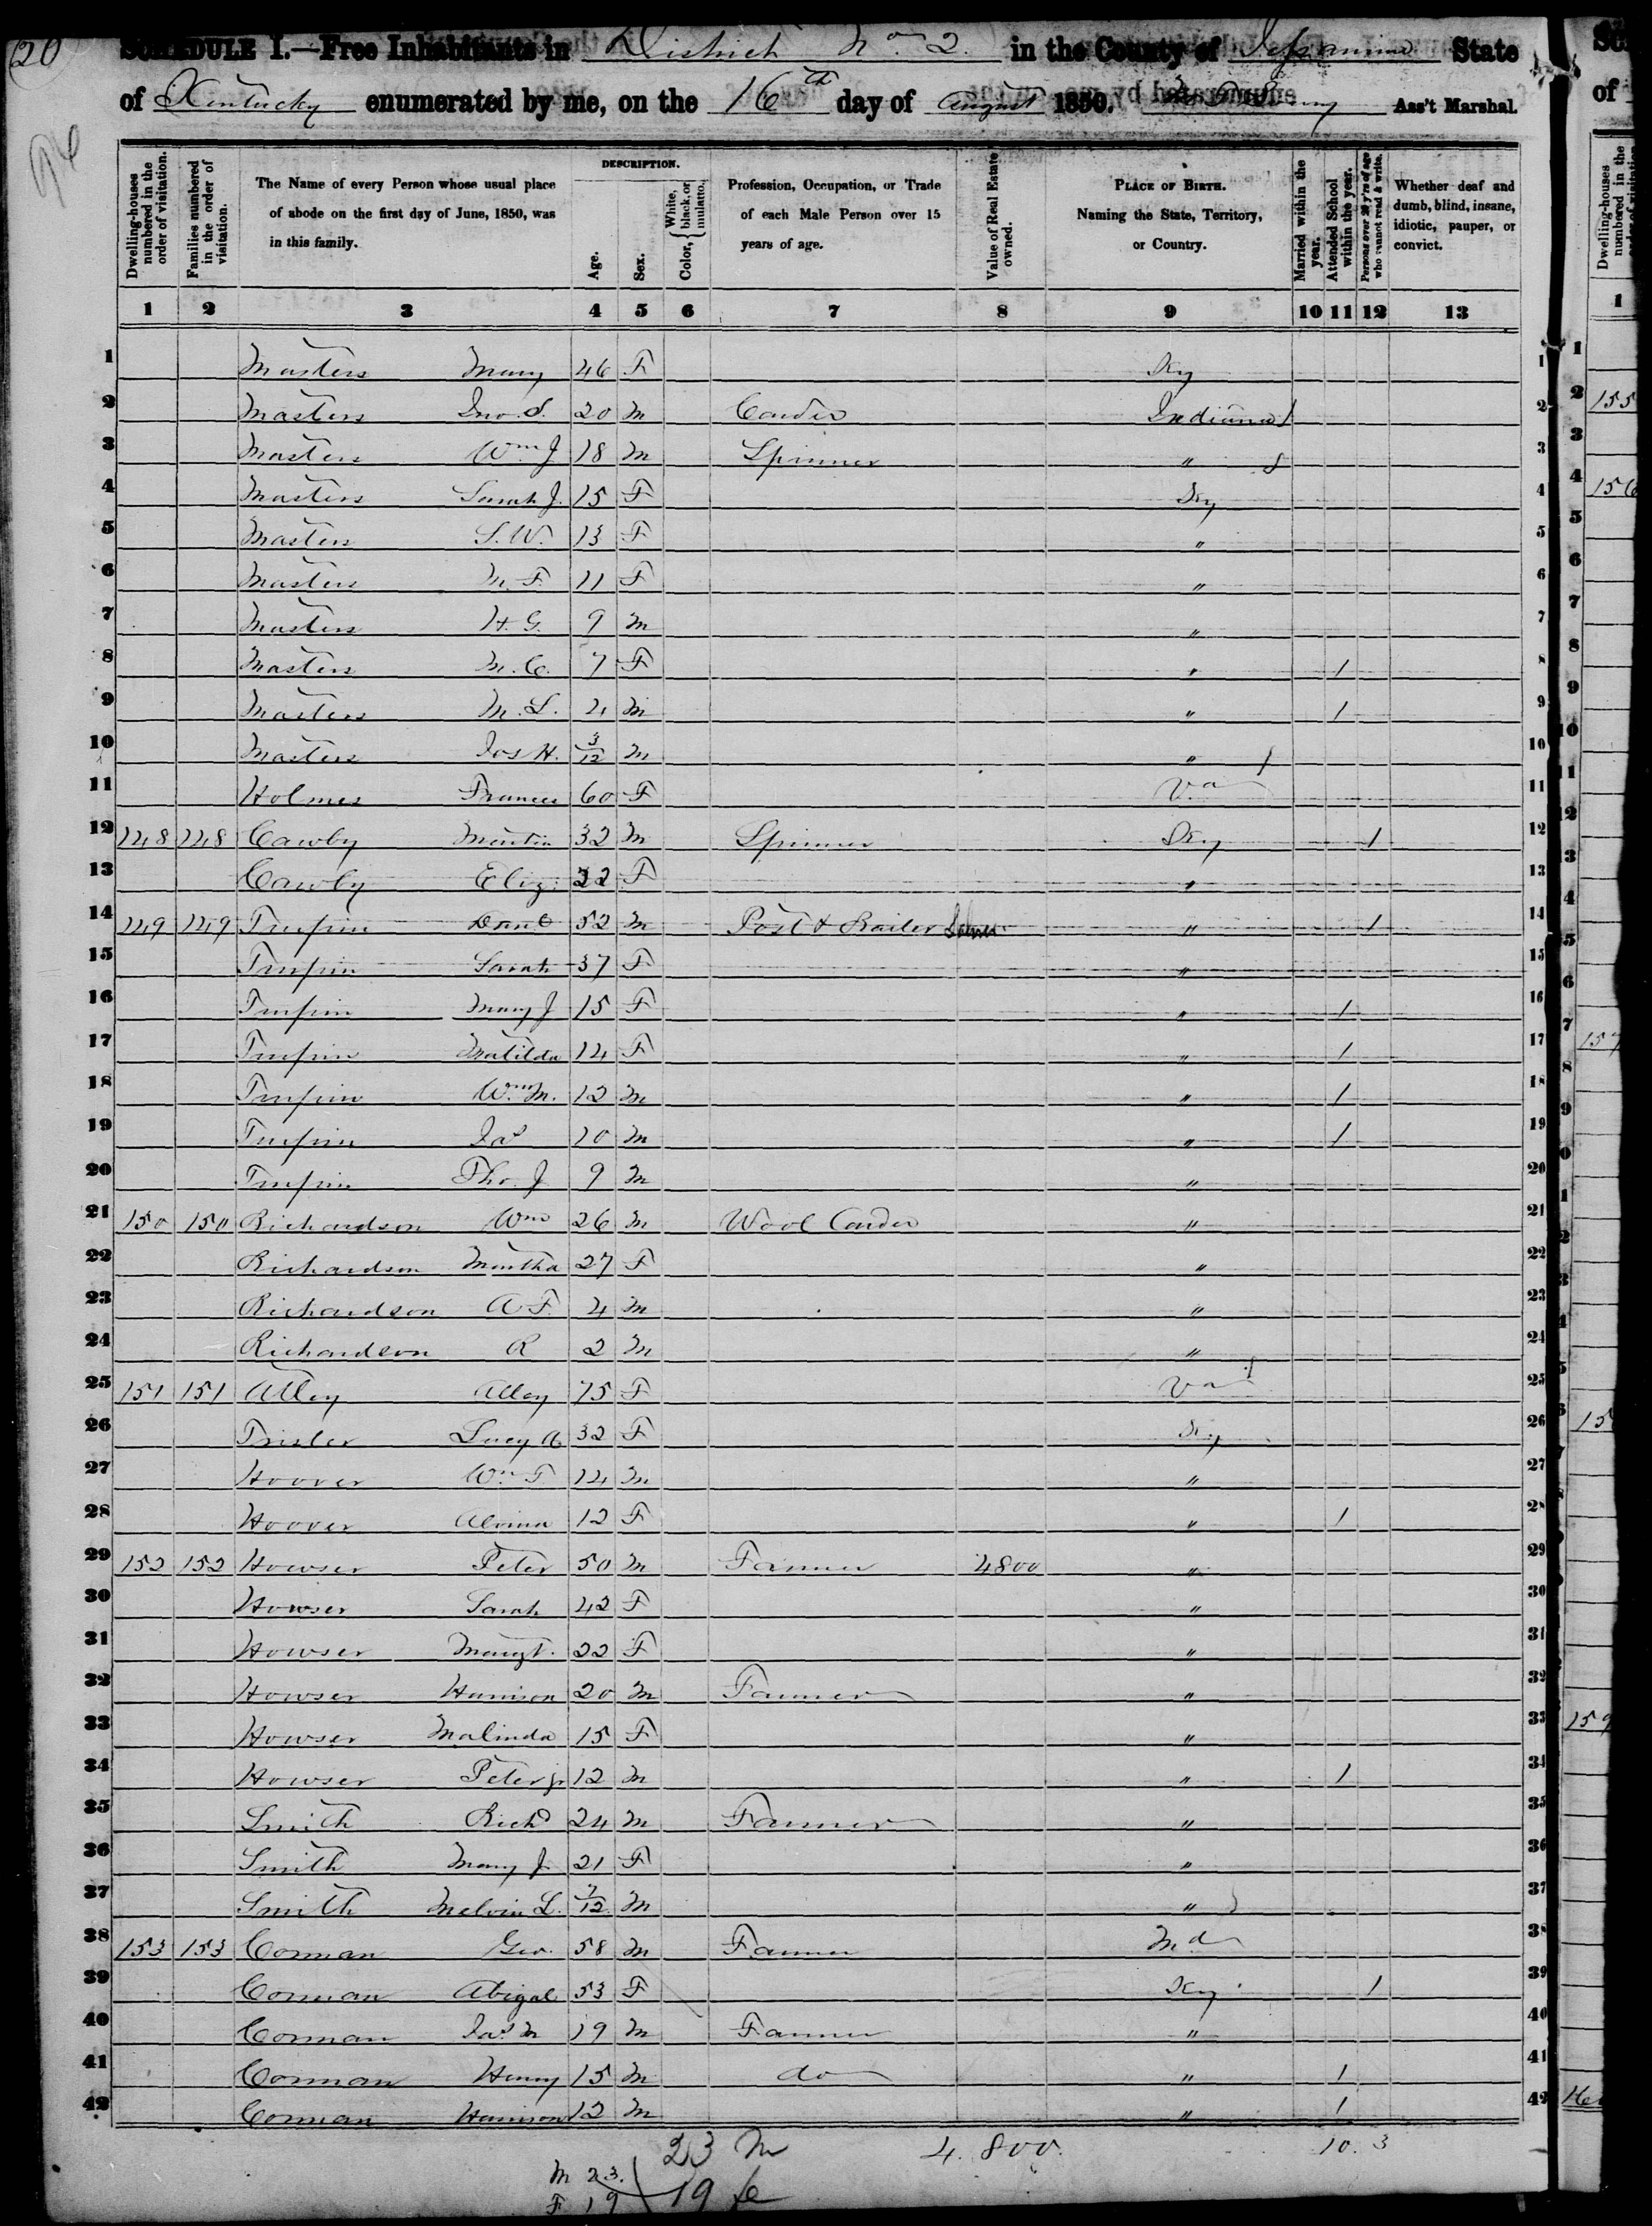 20
SCHEDULE I.—Free Inhabitants in District No. 2. in the County of Jessamine State
of Kentucky enumerated by me, on the 16th day of August 1850. Ass't Marshal.
Dwelling-houses numbered in the order of visitation.
Families numbered in the order of visitation.
The Name of every Person whose usual place of abode on the first day of June, 1850, was in this family.
DESCRIPTION.
Age.
Sex.
Color, { White, black, or mulatto.
Profession, Occupation, or Trade of each Male Person over 15 years of age.
Value of Real Estate owned.
PLACE OF BIRTH.
Naming the State, Territory, or Country.
Married within the year.
Attended School within the year.
Persons over 20 y'rs of age who cannot read & write.
Whether deaf and dumb, blind, insane, idiotic, pauper, or convict.
1 2 3 4 5 6 7 8 9 10 11 12 13
1 Masters Mary 46 F Ky 1
2 Masters Jno. S. 20 M Carder Indiana 2
3 Masters Wm J 18 M Spinner " 3
4 Masters Sarah J. 15 F Ky 4
5 Masters S. W. 13 F " 5
6 Masters M. F. 11 F " 6
7 Masters H. G. 9 M " 7
8 Masters M. C. 7 F " 1 8
9 Masters M. L. 4 M " 1 9
10 Masters Jos H. 3/12 M " 10
11 Holmes Frances 60 F Va 11
12 148 148 Cawby Martin 32 M Spinner Ky 1 12
13 Cawby Eliz. 22 F " 13
14 149 149 Turpin Danl 52 M Post & Railer " 1 14
15 Turpin Sarah 37 F " 15
16 Turpin Mary J 15 F " 1 16
17 Turpin Matilda 14 F " 1 17
18 Turpin Wm M. 12 M " 1 18
19 Turpin Jas 10 M " 1 19
20 Turpin Tho. J 9 M " 20
21 150 150 Richardson Wm 26 M Wool Carder " 21
22 Richardson Martha 27 F " 22
23 Richardson A F. 4 M " 23
24 Richardson R 2 M " 24
25 151 151 Alley Alley 75 F Va 25
26 Trisler Lucy A 32 F Ky 26
27 Hoover Wm T. 14 M " 27
28 Hoover Alvina 12 F " 1 28
29 152 152 Howser Peter 50 M Farmer 4800 " 29
30 Howser Sarah 42 F " 30
31 Howser Margt. 22 F " 31
32 Howser Harrison 20 M Farmer " 32
33 Howser Malinda 15 F " 33
34 Howser Peter jr 12 M " 1 34
35 Smith Richd 24 M Farmer " 35
36 Smith Mary J. 21 F " 36
37 Smith Melvin L. 7/12 M " 37
38 153 153 Corman Geo. 58 M Farmer Md 38
39 Corman Abigal 53 F Ky 1 39
40 Corman Jas M 19 M Farmer " 40
41 Corman Henry 15 M do " 1 41
42 Corman Harrison 12 M " 1 42
23 M 4.800. 10. 3
M 23.
F 19 19 fe